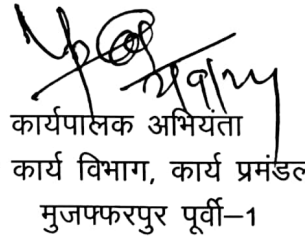 कार्यपालक अभियंता
कार्य विभाग, कार्य प्रमंडल
मुजफ्फरपुर पूर्वी–1